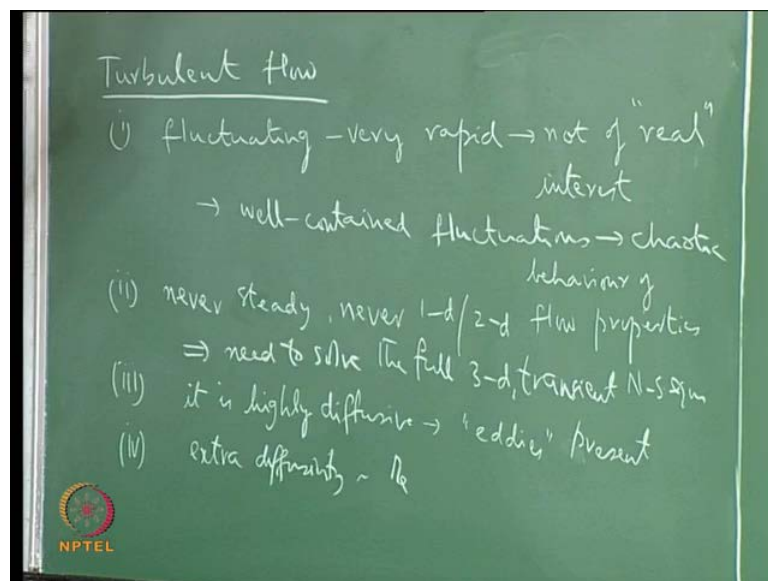 Turbulent flow
(i) fluctuating - very rapid → not of "real"
interest
→ well-contained fluctuations → chaotic
behaviour of
(ii) never steady, never 1-d/2-d flow properties
⇒ need to solve the full 3-d, transient N-S eqm
(iii) it is highly diffusive → "eddies" present
(iv) extra diffusivity ~ Re
NPTEL